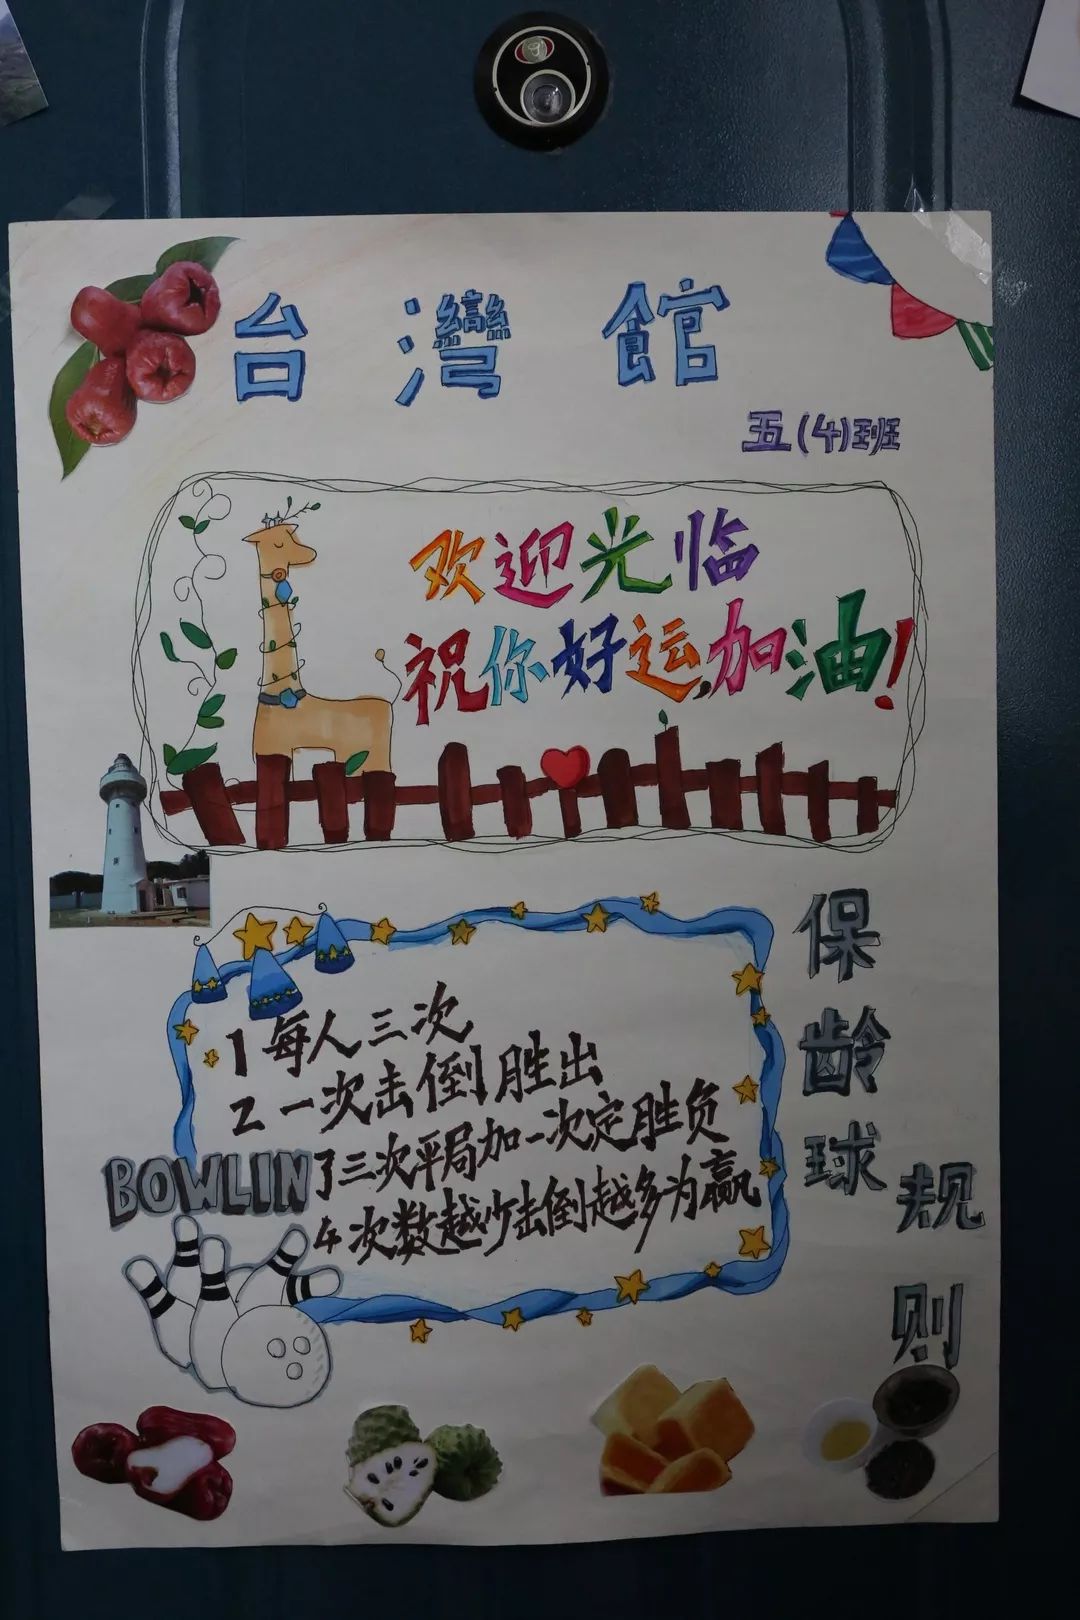 台灣館
五(4)班
欢迎光临
祝你好运,加油!
保龄球规则
1 每人三次
2 一次击倒胜出
3 三次平局加一次定胜负
4 次数越少击倒越多为赢
BOWLIN